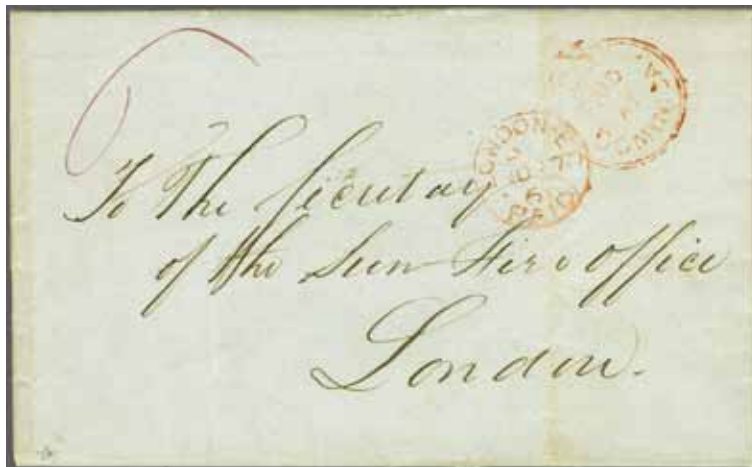 To The Secretary
of the Sun Fire Office
London.
LONDON
PAID